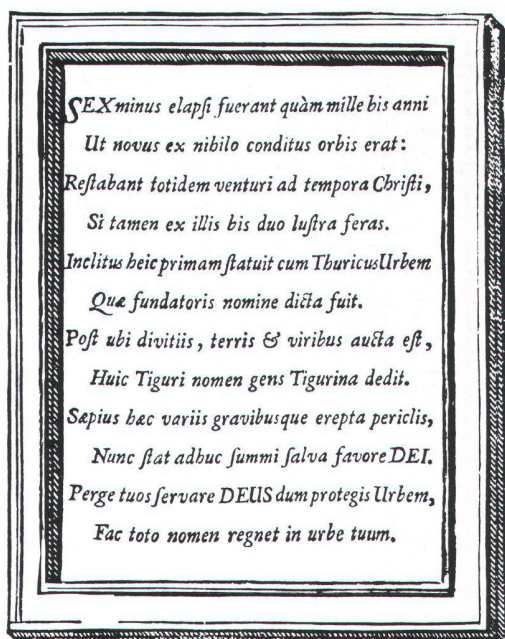 SEX minus elapſi fuerant quàm mille bis anni
Ut novus ex nihilo conditus orbis erat:
Reſtabant totidem venturi ad tempora Chriſti,
Si tamen ex illis bis duo luſtra feras.
Inclitus heic primam ſtatuit cum Thuricus Urbem
Quæ fundatoris nomine dicta fuit.
Poſt ubi divitiis, terris & viribus aucta eſt,
Huic Tiguri nomen gens Tigurina dedit.
Sæpius hæc variis gravibusque erepta periclis,
Nunc ſtat adhuc ſummi ſalva favore DEI.
Perge tuos ſervare DEUS dum protegis Urbem,
Fac toto nomen regnet in urbe tuum.